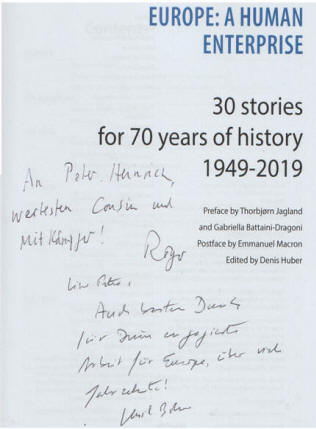 EUROPE: A HUMAN
ENTERPRISE
30 stories
for 70 years of history
1949-2019
Preface by Thorbjørn Jagland
and Gabriella Battaini-Dragoni
Postface by Emmanuel Macron
Edited by Denis Huber
An Peter Hennrich,
wertesten Cousin und
Mitkämpfer!
Roger
Auch besten Dank
für Deine engagierte
Arbeit für Europa, über viele
Jahrzehnte!